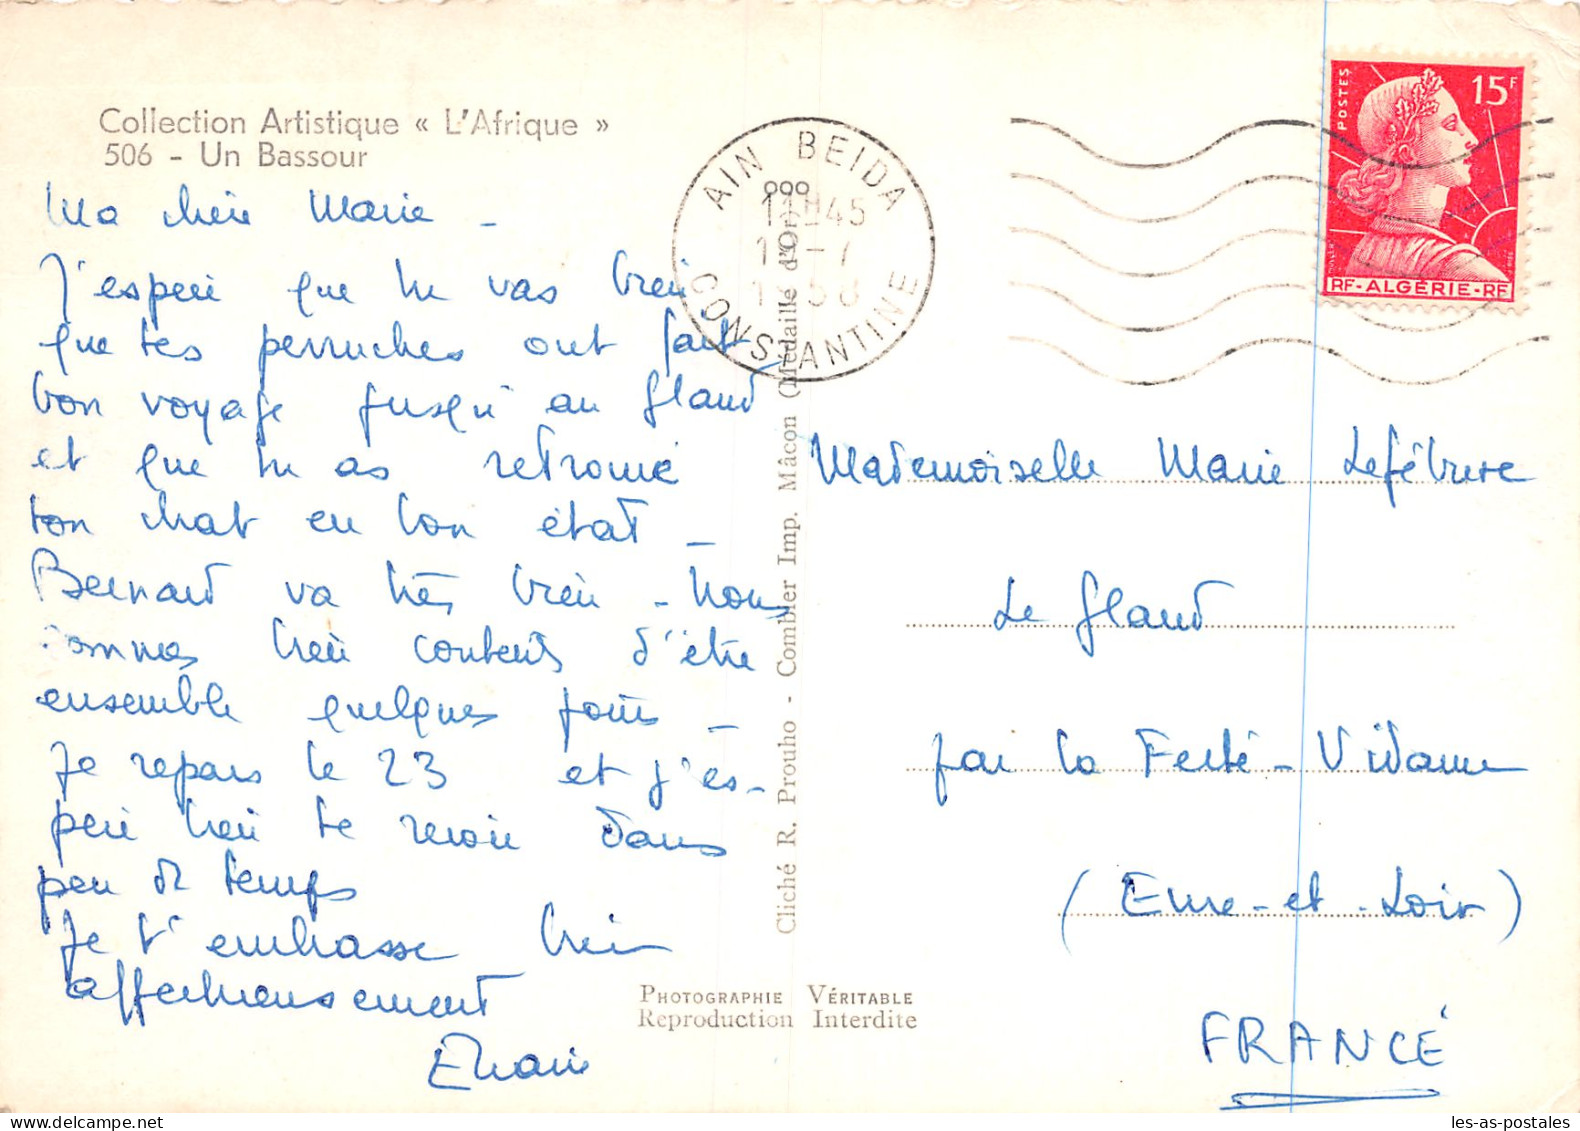 Collection Artistique « L'Afrique »
506 - Un Bassour
Ma chère Marie -
J'espère que tu vas bien
que tes perruches ont fait
bon voyage jusqu'au Gland
et que tu as retrouvé
ton chat en bon état -
Bernard va très bien - Nous
sommes bien contents d'être
ensemble quelques jours -
Je repars le 23 et j'es-
père bien te revoir dans
peu de temps
Je t'embrasse bien
affectueusement
AIN BEIDA
CONSTANTINE
Cliché R. Prouho - Combier Imp. Mâcon (Médaille d'Or)
PHOTOGRAPHIE VÉRITABLE
Reproduction Interdite
POSTES
15F
RF-ALGÉRIE-RF
Mademoiselle Marie Lefébvre
Le Gland
par la Ferté-Vidame
(Eure-et-Loir)
FRANCE
les-as-postales